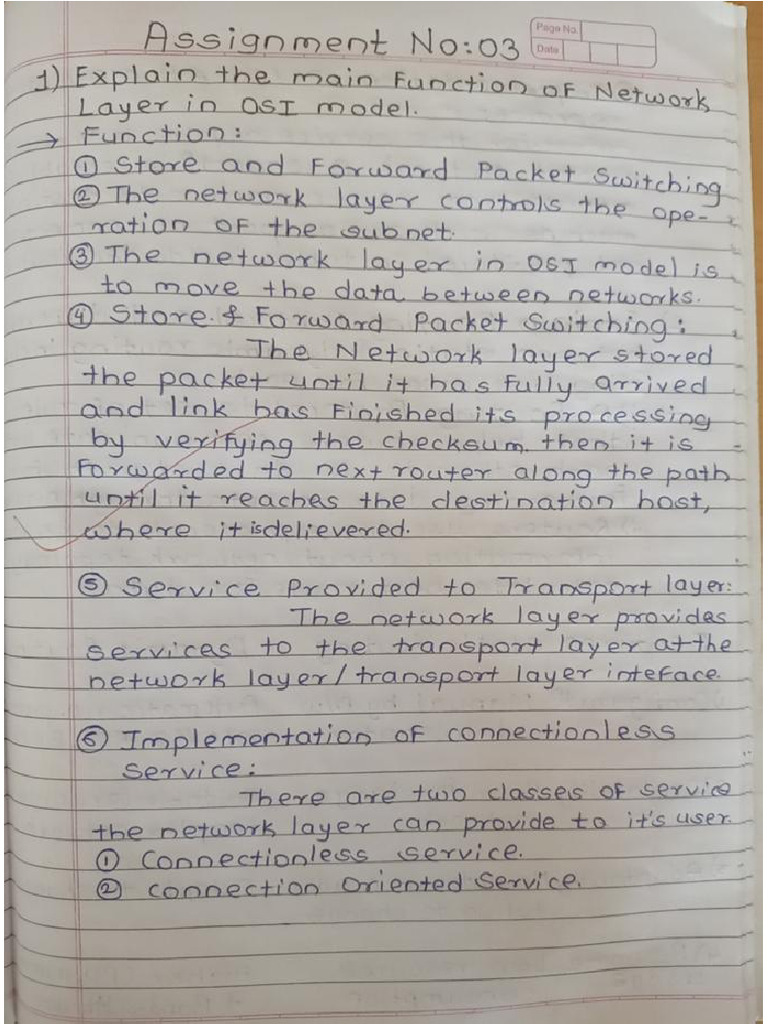 Assignment No:03
Page No.
Date
1) Explain the main Function of Network
Layer in OSI model.
→ Function:
① Store and Forward Packet Switching
② The network layer controls the ope-
ration of the subnet.
③ The network layer in OSI model is
to move the data between networks.
④ Store & Forward Packet Switching:
The Network layer stored
the packet until it has fully arrived
and link has Finished its processing
by verifying the checksum. then it is
Forwarded to next router along the path
until it reaches the destination host,
where it is delievered.
⑤ Service Provided to Transport layer:
The network layer provides
services to the transport layer at the
network layer/transport layer inteface.
⑥ Implementation of connectionless
Service:
There are two classes of service
the network layer can provide to it's user.
① Connectionless service.
② Connection Oriented Service.